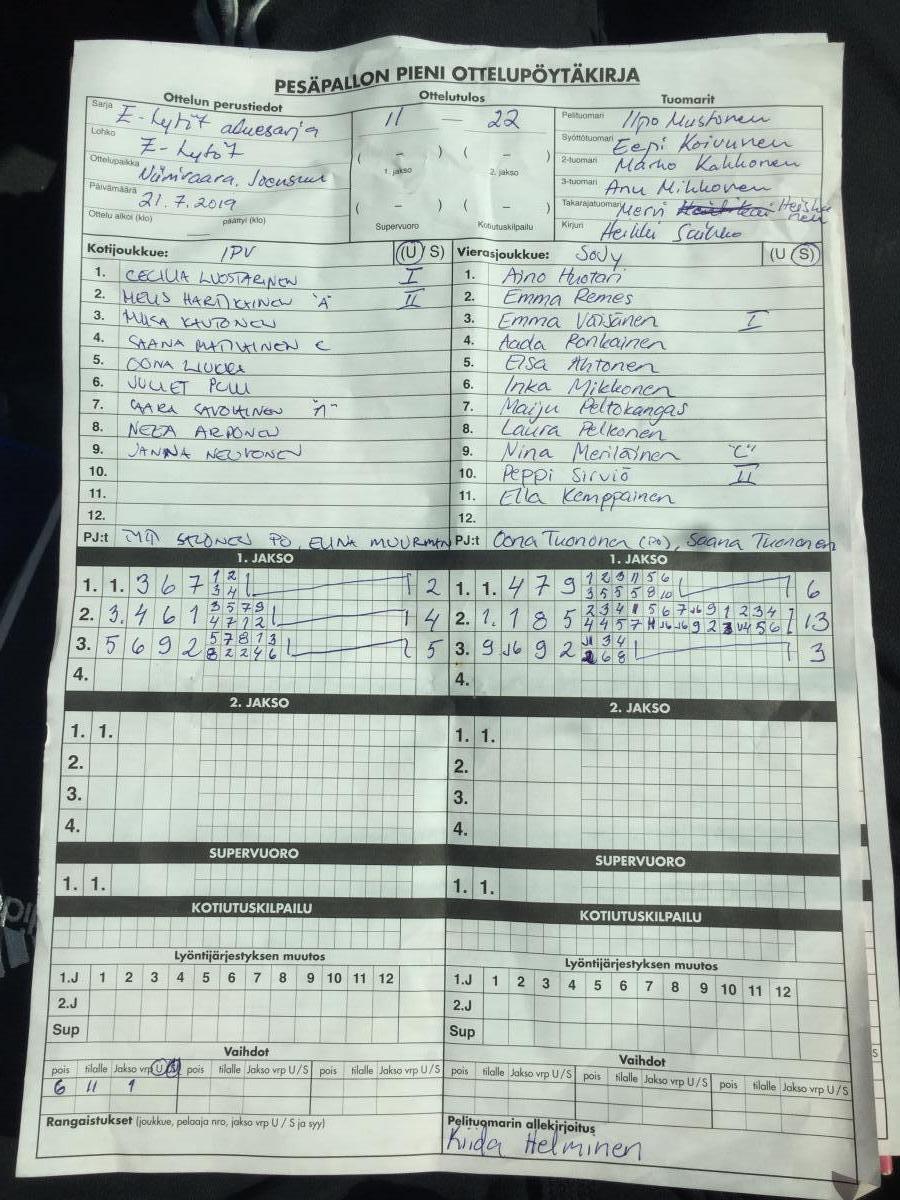 PESÄPALLON PIENI OTTELUPÖYTÄKIRJA
Ottelun perustiedot
Sarja E-tytöt aluesarja
Lohko E-tytöt
Ottelupaikka Niinivaara, Joensuu
Päivämäärä 21.7.2019
Ottelu alkoi (klo) päättyi (klo)
Ottelutulos
11 — 22
( – ) ( – )
1. jakso 2. jakso
( – ) ( – )
Supervuoro Kotiutuskilpailu
Tuomarit
Pelituomari Ilpo Mustonen
Syöttötuomari Eepi Koivunen
2-tuomari Marko Kakkonen
3-tuomari Anu Mikkonen
Takarajatuomari Mervi Heiskanen
Kirjuri Heikki
Kotijoukkue: IPV (U S)
1. CECILIA LUOSTARINEN I
2. HARTIKAINEN "A" II
3. KAUTONEN
4. SAANA C
5. OONA
6. JULIET
7. SAARA SAVOLAINEN
8. NEEA ARPONEN
9. JANNA NEUVONEN
10.
11.
12.
PJ:t SALONEN PO, ELINA MUURMAN
Vierasjoukkue: SoJy (U S)
1. Aino Huotari
2. Emma Remes
3. Emma Väisänen I
4. Aada Ronkainen
5. Elsa Ahtonen
6. Inka Mikkonen
7. Maiju Peltokangas
8. Laura Pelkonen
9. Nina Meriläinen "C"
10. Peppi Sirviö II
11. Ella Kemppainen
12.
PJ:t Oona Tuononen (PO), Saana Tuononen
1. JAKSO
1. 1. 3 6 7 1 2 3 4 2
2. 3. 4 6 1 3 5 7 9 4 7 1 2 4
3. 5 6 9 2 5 7 8 1 3 8 2 2 4 6 5
4.
1. JAKSO
1. 1. 4 7 9 1 2 3 11 5 6 3 5 5 5 8 10 6
2. 1. 1 8 5 13
3. 9 J6 9 2 3
4.
2. JAKSO
1. 1.
2.
3.
4.
2. JAKSO
1. 1.
2.
3.
4.
SUPERVUORO
1. 1.
SUPERVUORO
1. 1.
KOTIUTUSKILPAILU
KOTIUTUSKILPAILU
Lyöntijärjestyksen muutos
1.J 1 2 3 4 5 6 7 8 9 10 11 12
2.J
Sup
Lyöntijärjestyksen muutos
1.J 1 2 3 4 5 6 7 8 9 10 11 12
2.J
Sup
Vaihdot
pois tilalle Jakso vrp U / S pois tilalle Jakso vrp U / S pois tilalle Jakso vrp U / S
6 11 1
Vaihdot
pois tilalle Jakso vrp U / S pois tilalle Jakso vrp U / S pois tilalle Jakso vrp U / S
Rangaistukset (joukkue, pelaaja nro, jakso vrp U / S ja syy)
Pelituomarin allekirjoitus
Kiida Helminen